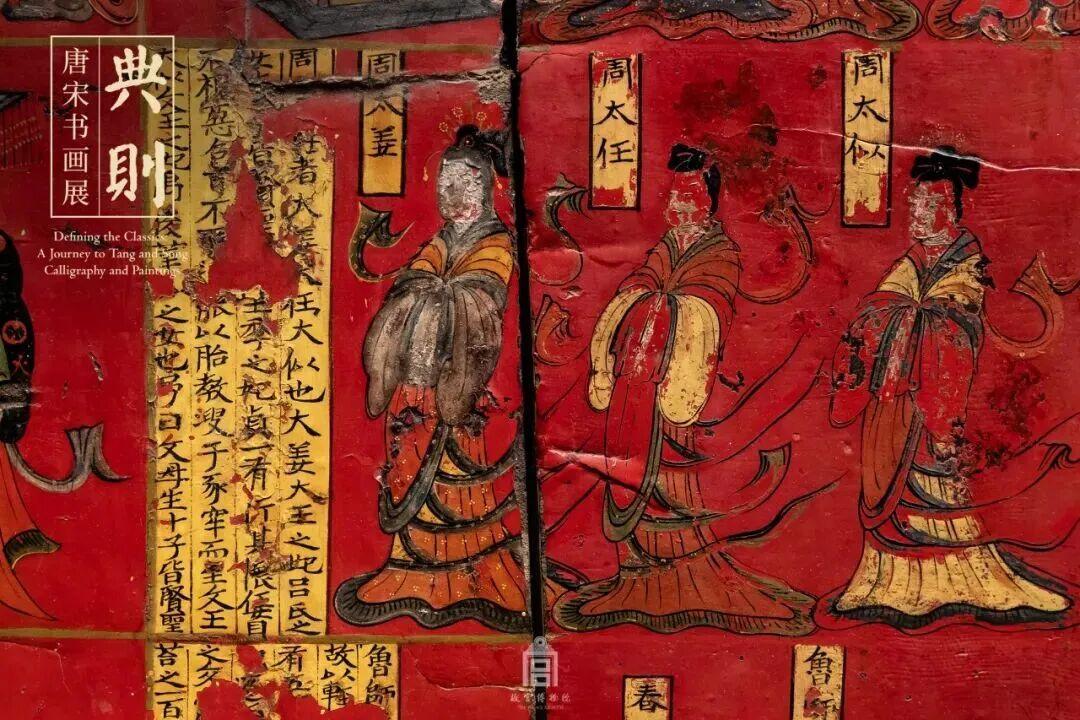 典則
唐宋书画展
Defining the Classics:
A Journey to Tang and Song
Calligraphy and Paintings
周太姜
周太任
周太似
周
者大姜大任大似也大姜大王之妃吕氏之
王季之妃貞一有行其懷任
不視惡色耳不
以胎教溲于豕牢而生文王
之女也号曰文母生十子皆賢聖
魯師
春
魯師
故以
有五
之夕
苔之一百
故宫博物院